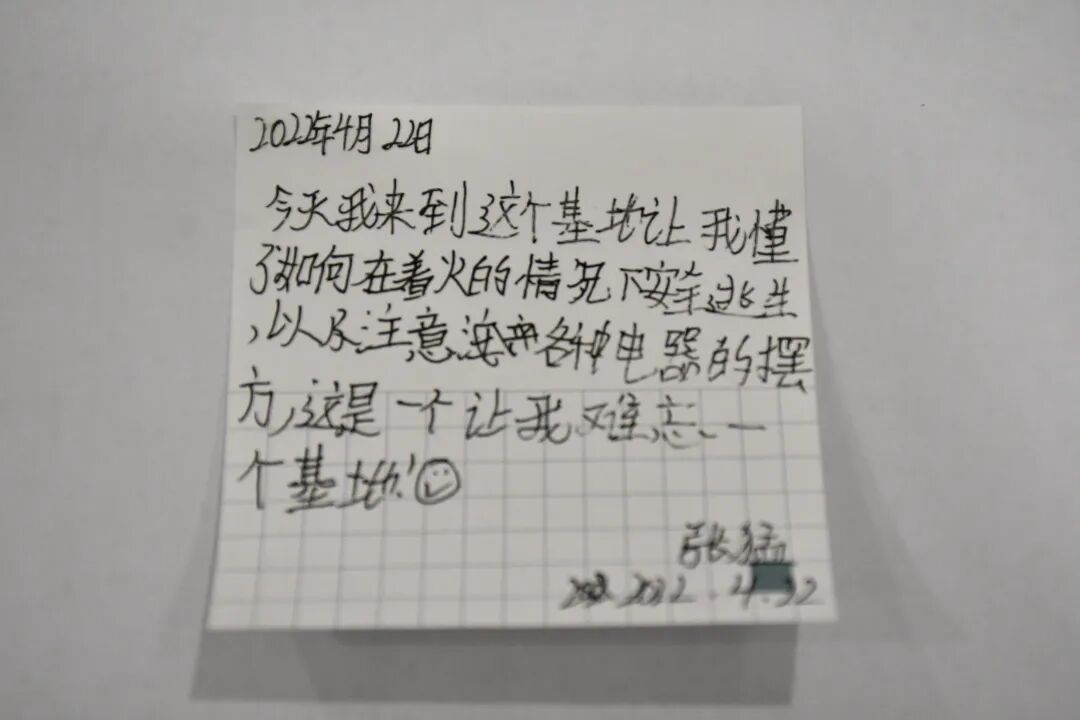 2022年4月22日
今天我来到这个基地让我懂
了如何在着火的情况下安全逃生
,以及注意各种电器的摆
方,这是一个让我难忘、一
个基地!
张猛
2022.4.22